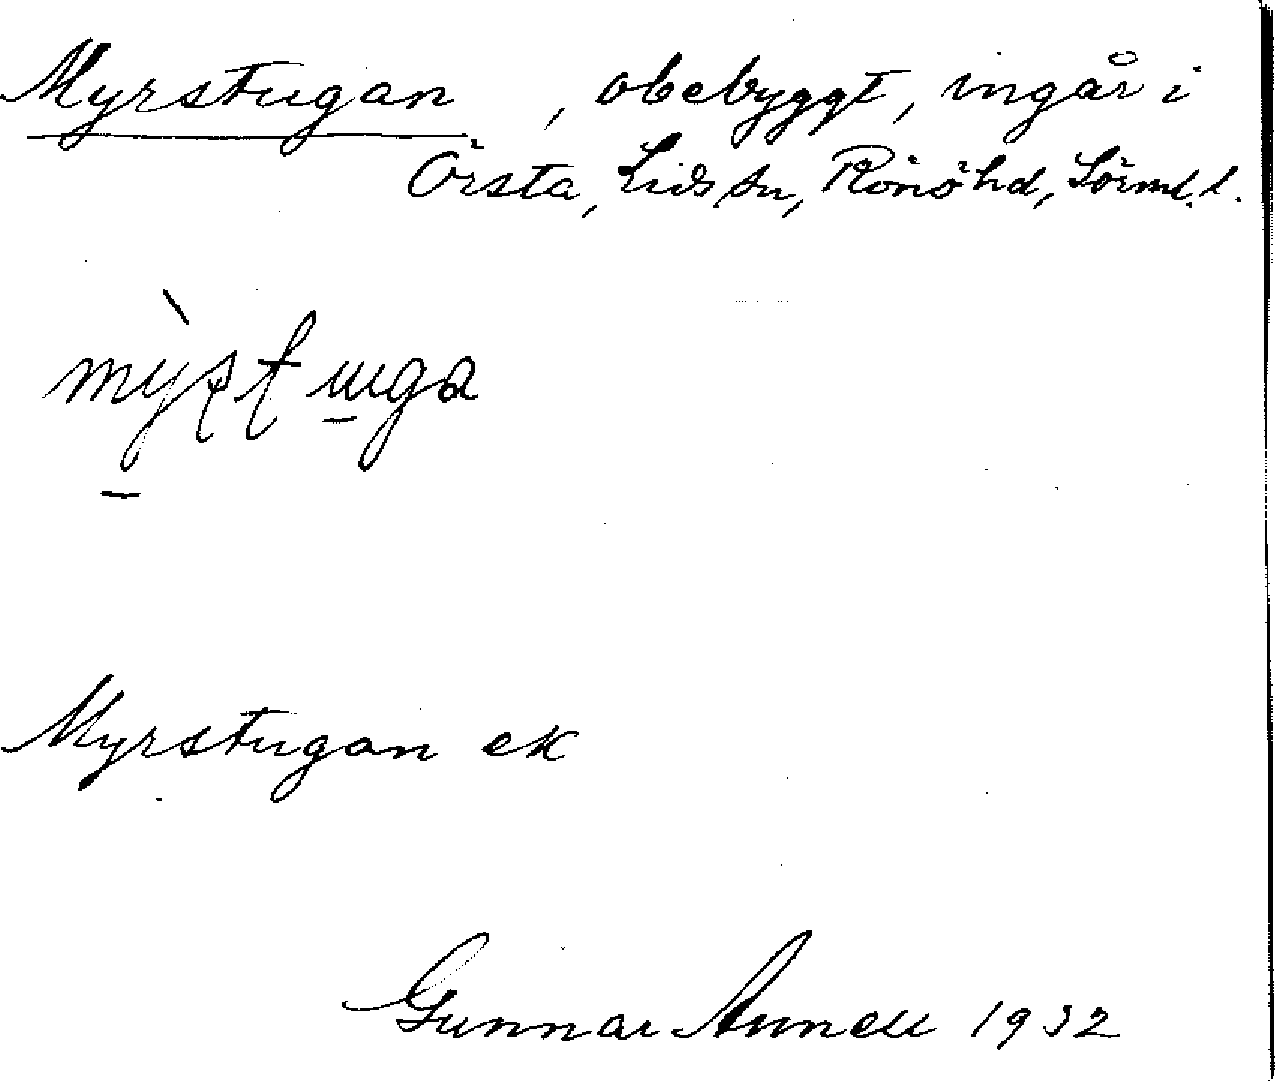 Myrstugan, obebyggt, ingår i
Örsta, Lids sn, Rönöhd, Sörml. l.
Myrstugan ek
Gunnar Annell 1932